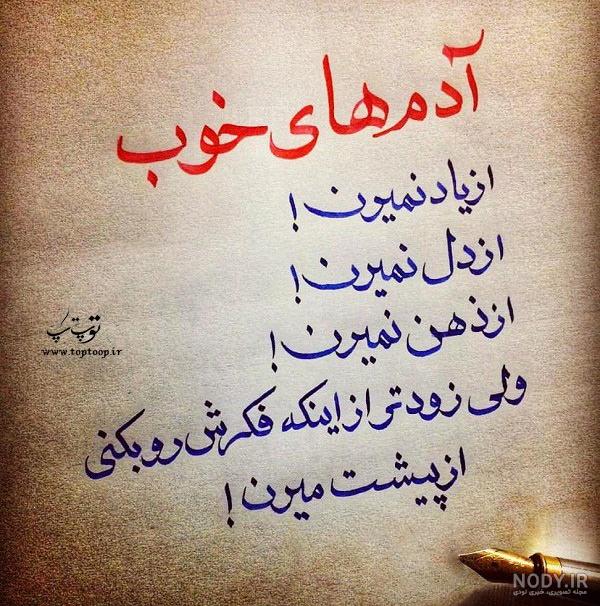 آدم‌های خوب
از یاد نمیرن!
از دل نمیرن!
از ذهن نمیرن!
ولی زودتر از اینکه فکرش رو بکنی
از پیشت میرن!
توپ تاپ
www.toptoop.ir
NODY.IR
مجله تصویری، خبری نودی